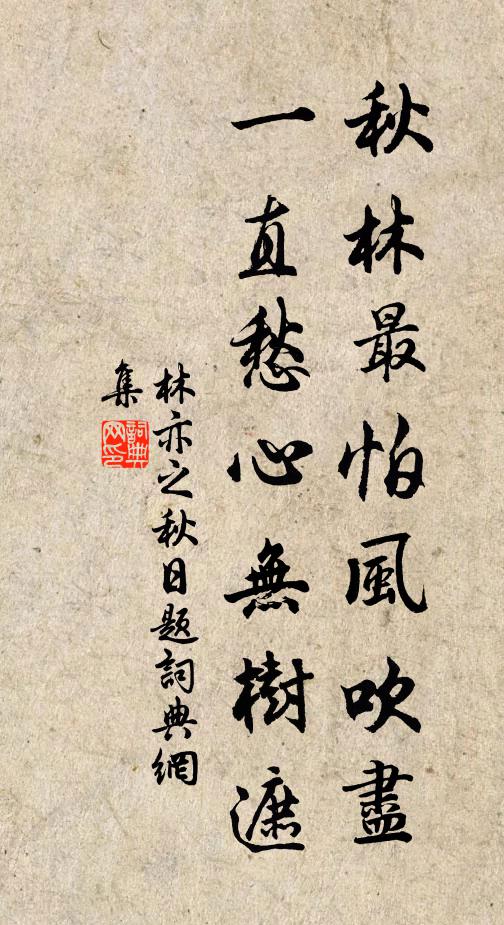 秋林最怕風吹盡
一直愁心無樹遮
林亦之秋日題詞典網
集
詞典
网印